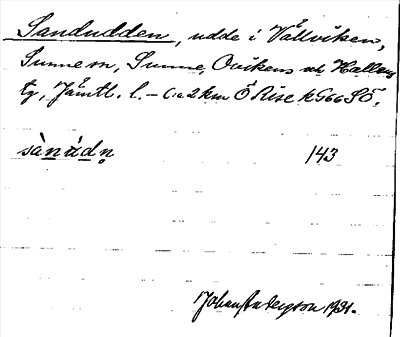 Sandudden, udde i Vällviken,
Sunne sn, Sunne, Ovikens och Hallens
tg, Jämtl. l. – C:a 2 km Ö Rise kG66 SÖ.
sànùdṇ 143
Johan Anderzson 1931.